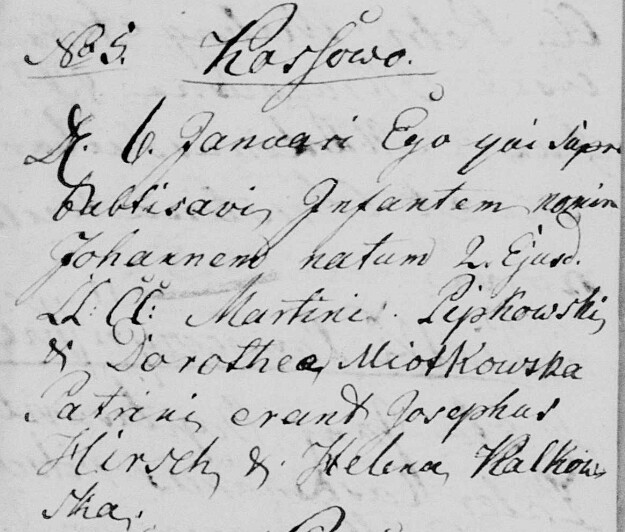 No 5. Kassowo.
D. 6. Januari Ego qui supr
babtisavi Infantem nomin
Johannem natum 2. Ejusd.
LL: CC: Martini Pipkowski
& Dorothea Miotkowska
Patrini erant Josephus
Hirsch & Helena Kalkow
ska.